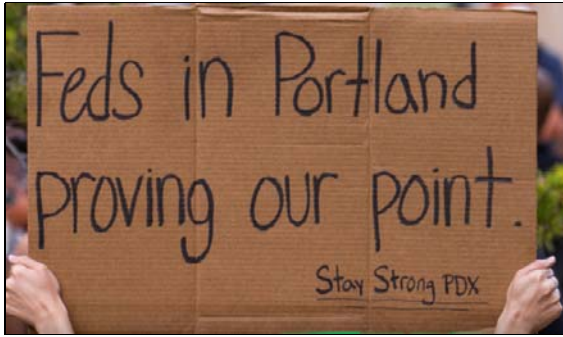 Feds in Portland
proving our point.
Stay Strong PDX